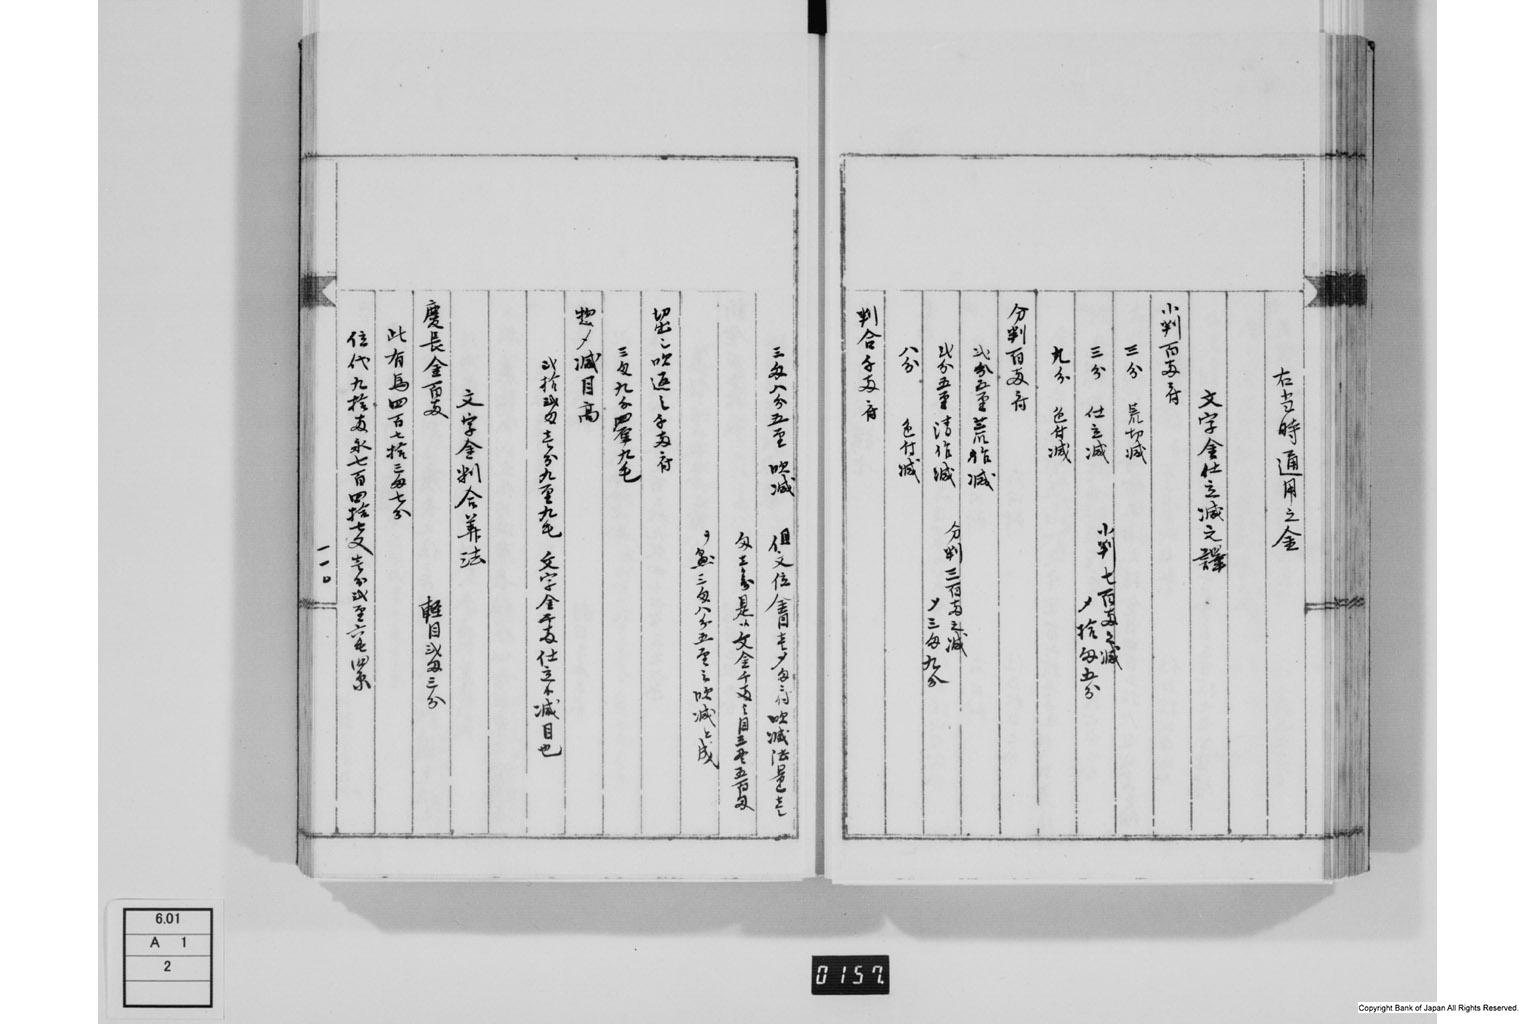 右当時通用之金
文字金仕立減之訳
小判百両ニ付
三分 荒切減
三分 仕立減
九分 色付減
小判七百両之減
〆拾匁五分
分判百両ニ付
弐分五厘 荒作減
弐分五厘 清作減
八分 色付減
分判三百両之減
〆三匁九分
判合千両ニ付
三匁八分五厘 吹減
但文位金目壱〆匁ニ付吹減法量壱
匁
三匁八分五厘之吹減と成
切出シ吹返シ千両ニ付
三匁九分四厘九毛
惣〆減目高
弐拾弐匁壱分九厘九毛 文字金千両仕立ノ減目也
文字金判合算法
慶長金百両 軽目弐匁三分
此有為四百七拾三匁七分
位代九拾両永七百四拾七文壱分弐厘六毛四糸
一一〇
6.01
A 1
2
0157
Copyright Bank of Japan All Rights Reserved.